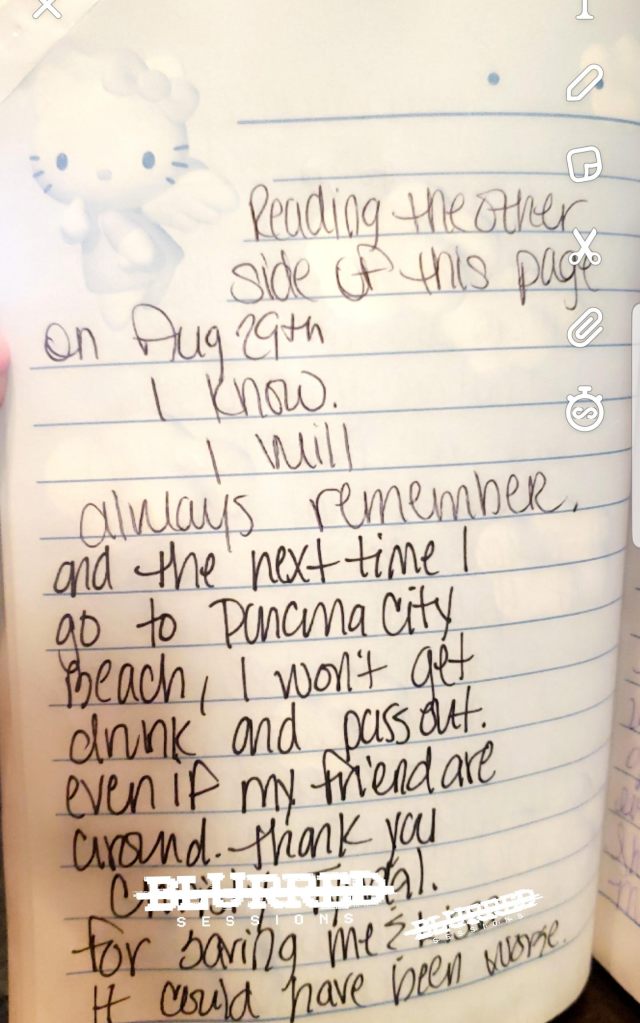 Reading the other
side of this page
on Aug 29th
I know.
I will
always remember.
and the next time I
go to Panama City
Beach, I won't get
drunk and pass out.
even if my friend are
around. thank you
BLURRED
SESSIONS
for saving me &
SESSIONS
It could have been worse.